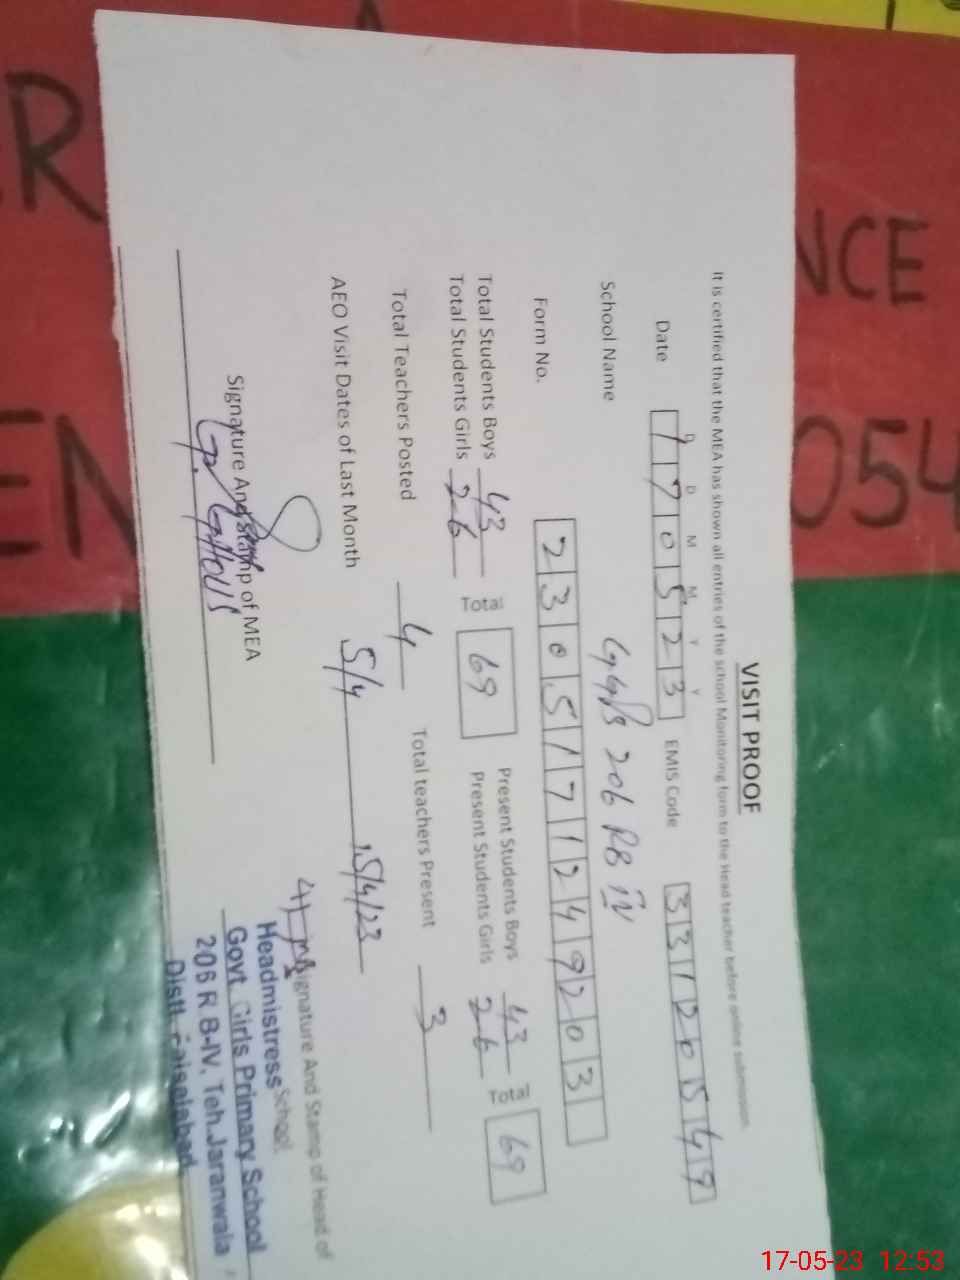 VISIT PROOF
It is certified that the MEA has shown all entries of the school Monitoring form to the Head teacher before online submission.
D D M M Y Y
Date 170523 EMIS Code 33120549
School Name GGPS 206 RB IV
Form No. 2305171249203
Total Students Boys 43 Total 69 Present Students Boys 43 Total 69
Total Students Girls 26 Present Students Girls 26
Total Teachers Posted 4 Total teachers Present 3
AEO Visit Dates of Last Month 5/4 15/4/23
Signature And Stamp of MEA
Signature And Stamp of Head of
School
Headmistress
Govt. Girls Primary School
206 R B-IV, Teh.Jaranwala
Distt. Faisalabad.
R
NCE
EN
054
17-05-23 12:53